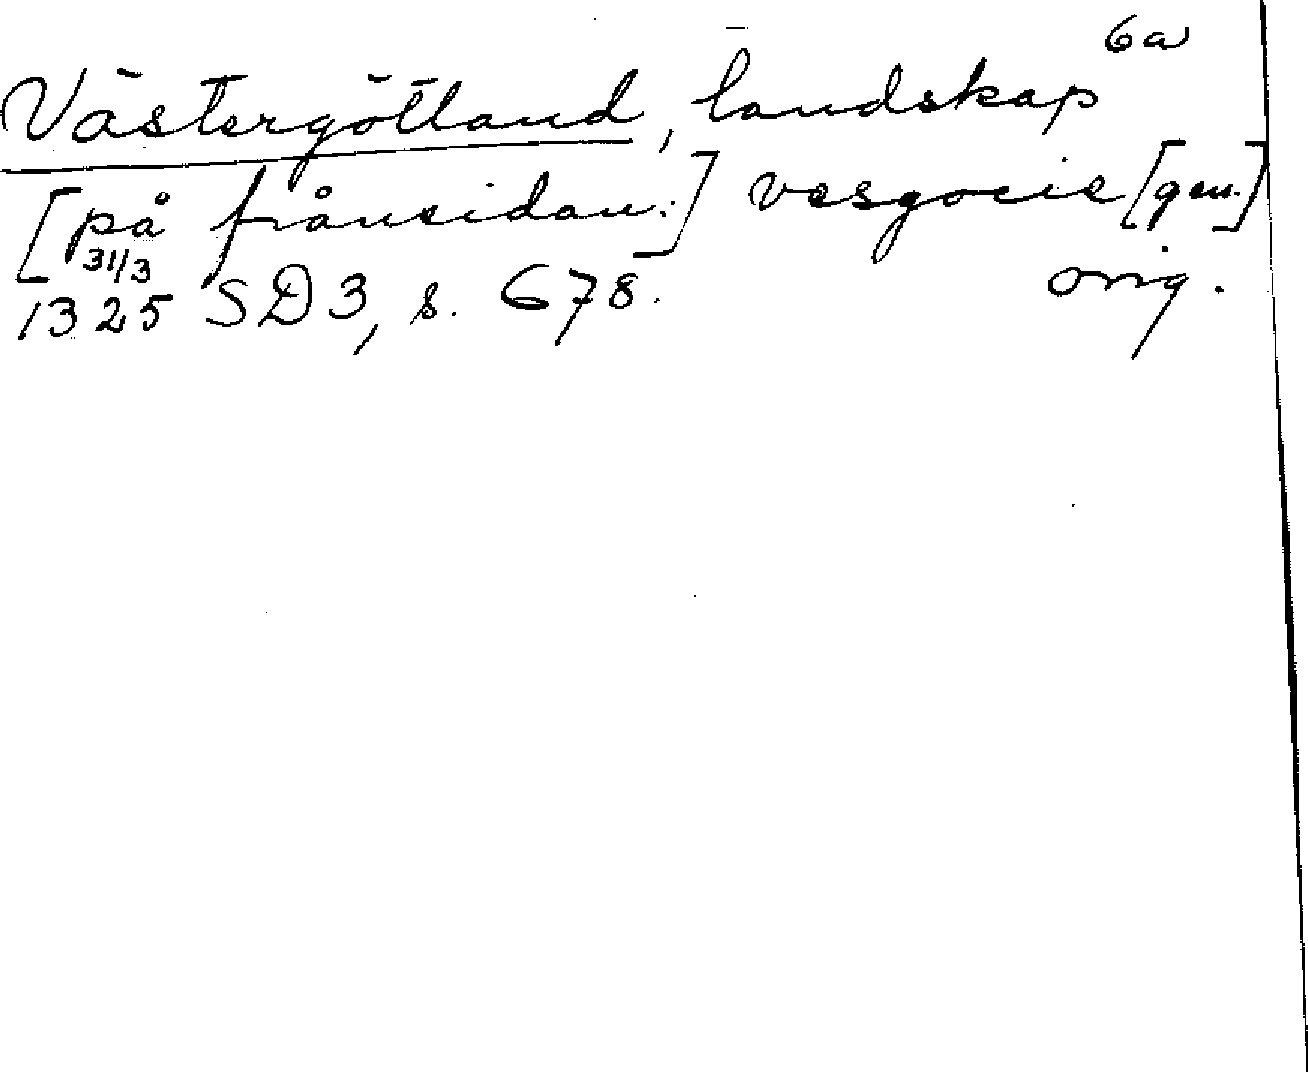 6a
Västergötland, landskap
[på frånsidan:] vesgocie [gen.]
31/3
1325 SD3, s. 678. orig.